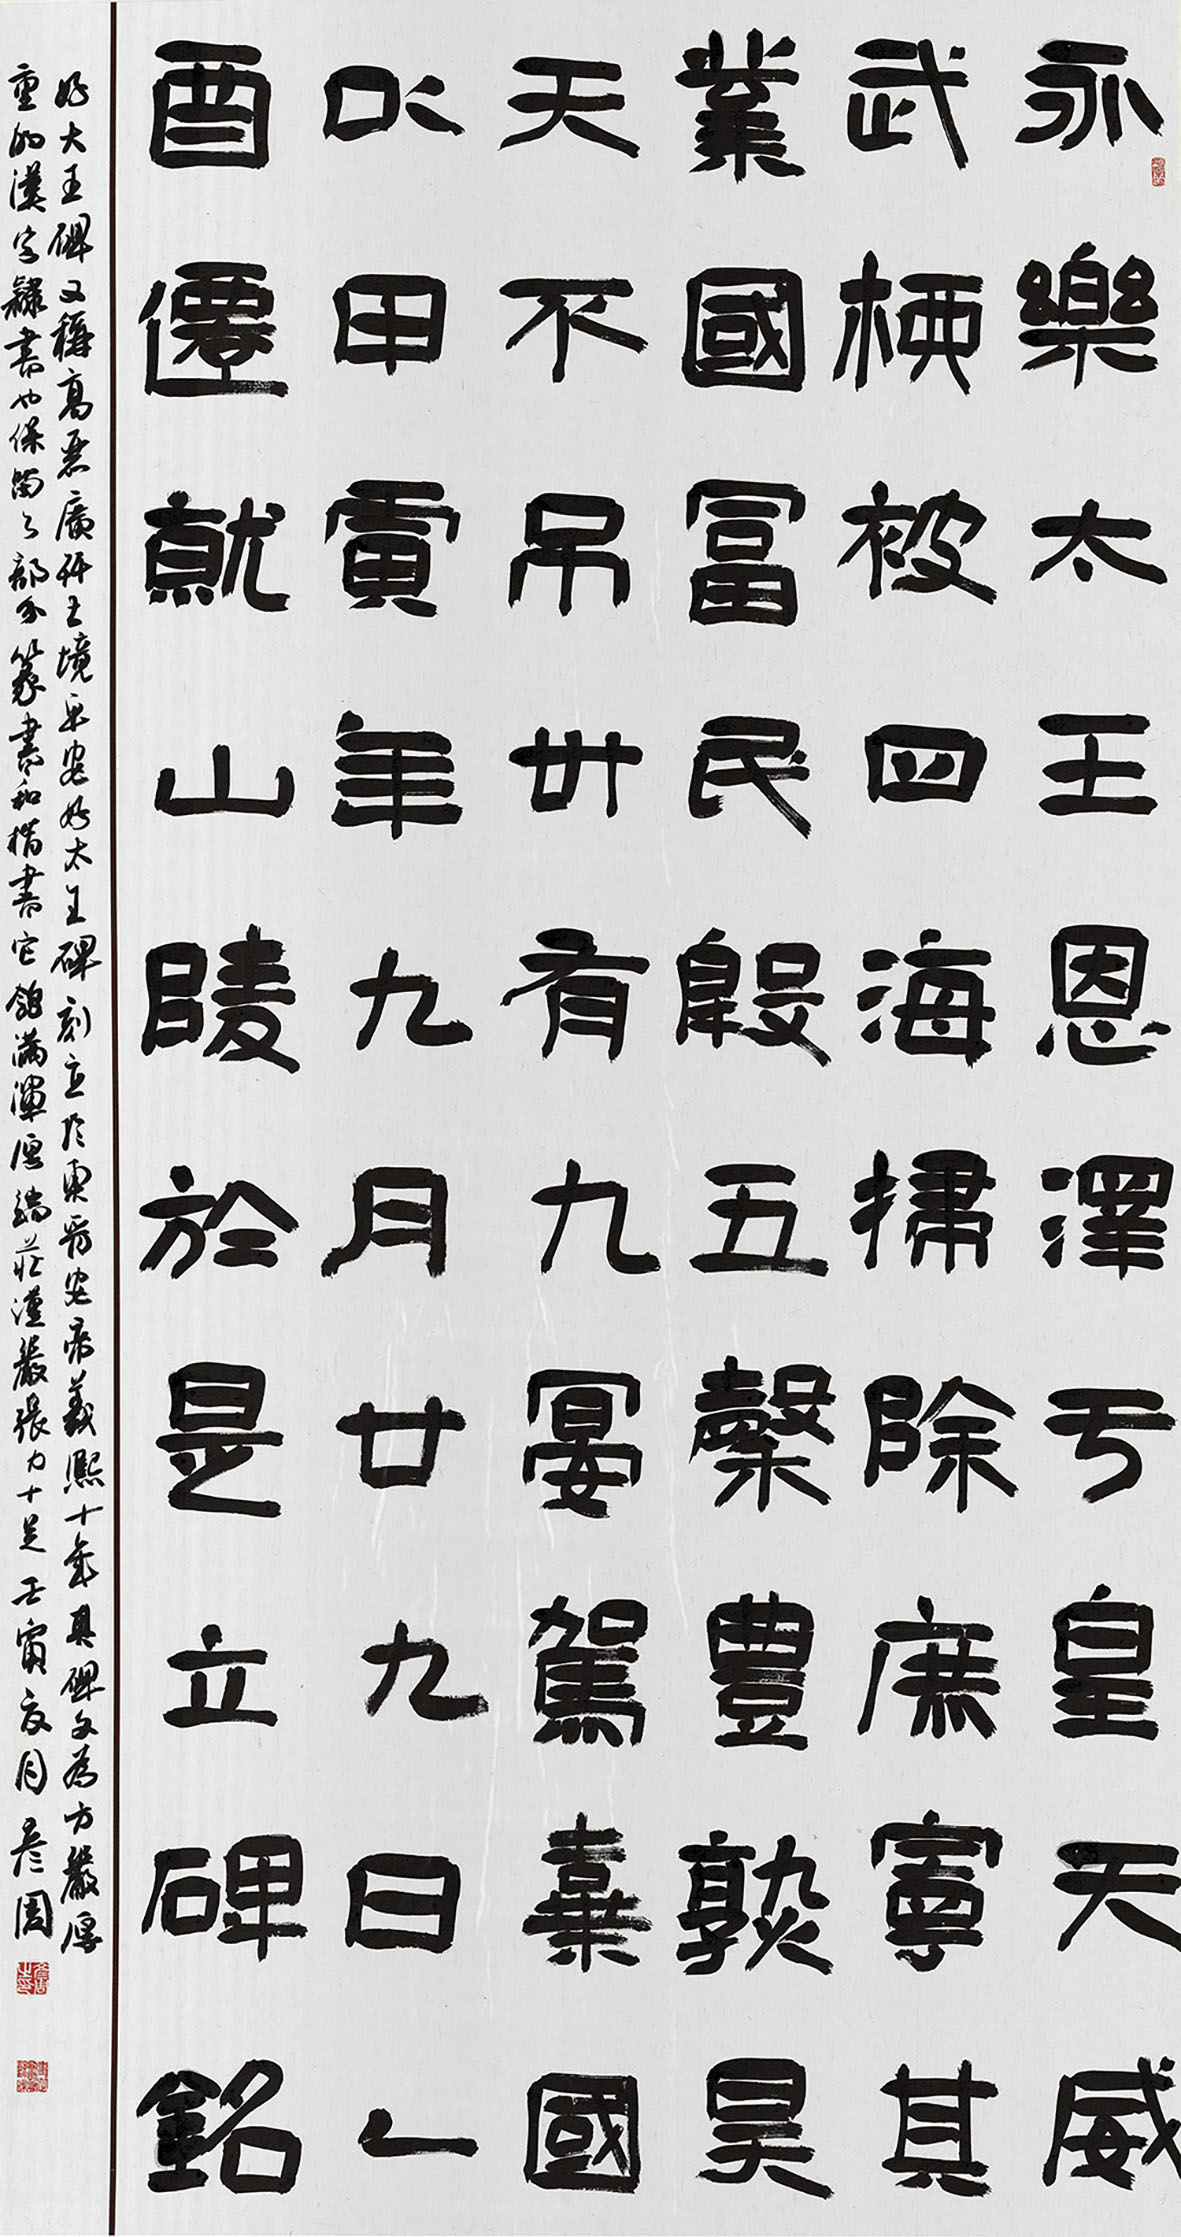 永樂太王恩澤亏皇天威
武㭴被四海掃除庶寧其
業國冨民殷五穀豊熟昊
天不吊卅有九宴駕棄國
以甲寅年九月廿九日乙
酉遷就山陵於是立碑銘
好大王碑又稱高丽廣开土境平安好太王碑刻立於東晋安帝義熙十年其碑文為方嚴厚
重的漢字隸書也保留了部分篆書和楷書它飽滿渾厚端莊謹嚴張力十足壬寅夏月彦周